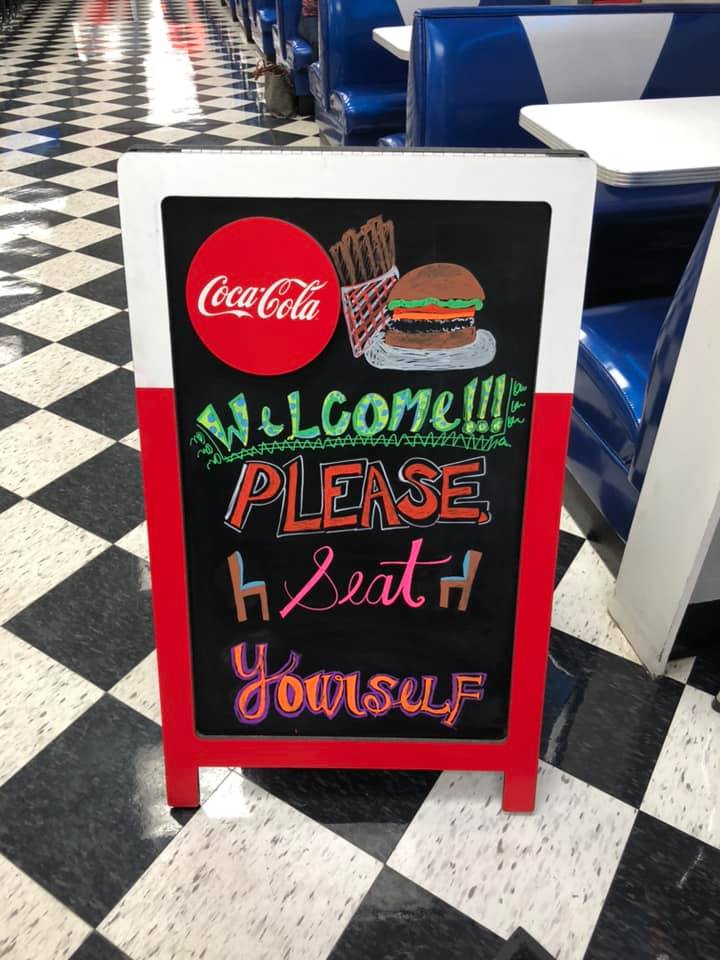 Coca-Cola
WeLCOMe!!!
PLEASE
Seat
YourseLF